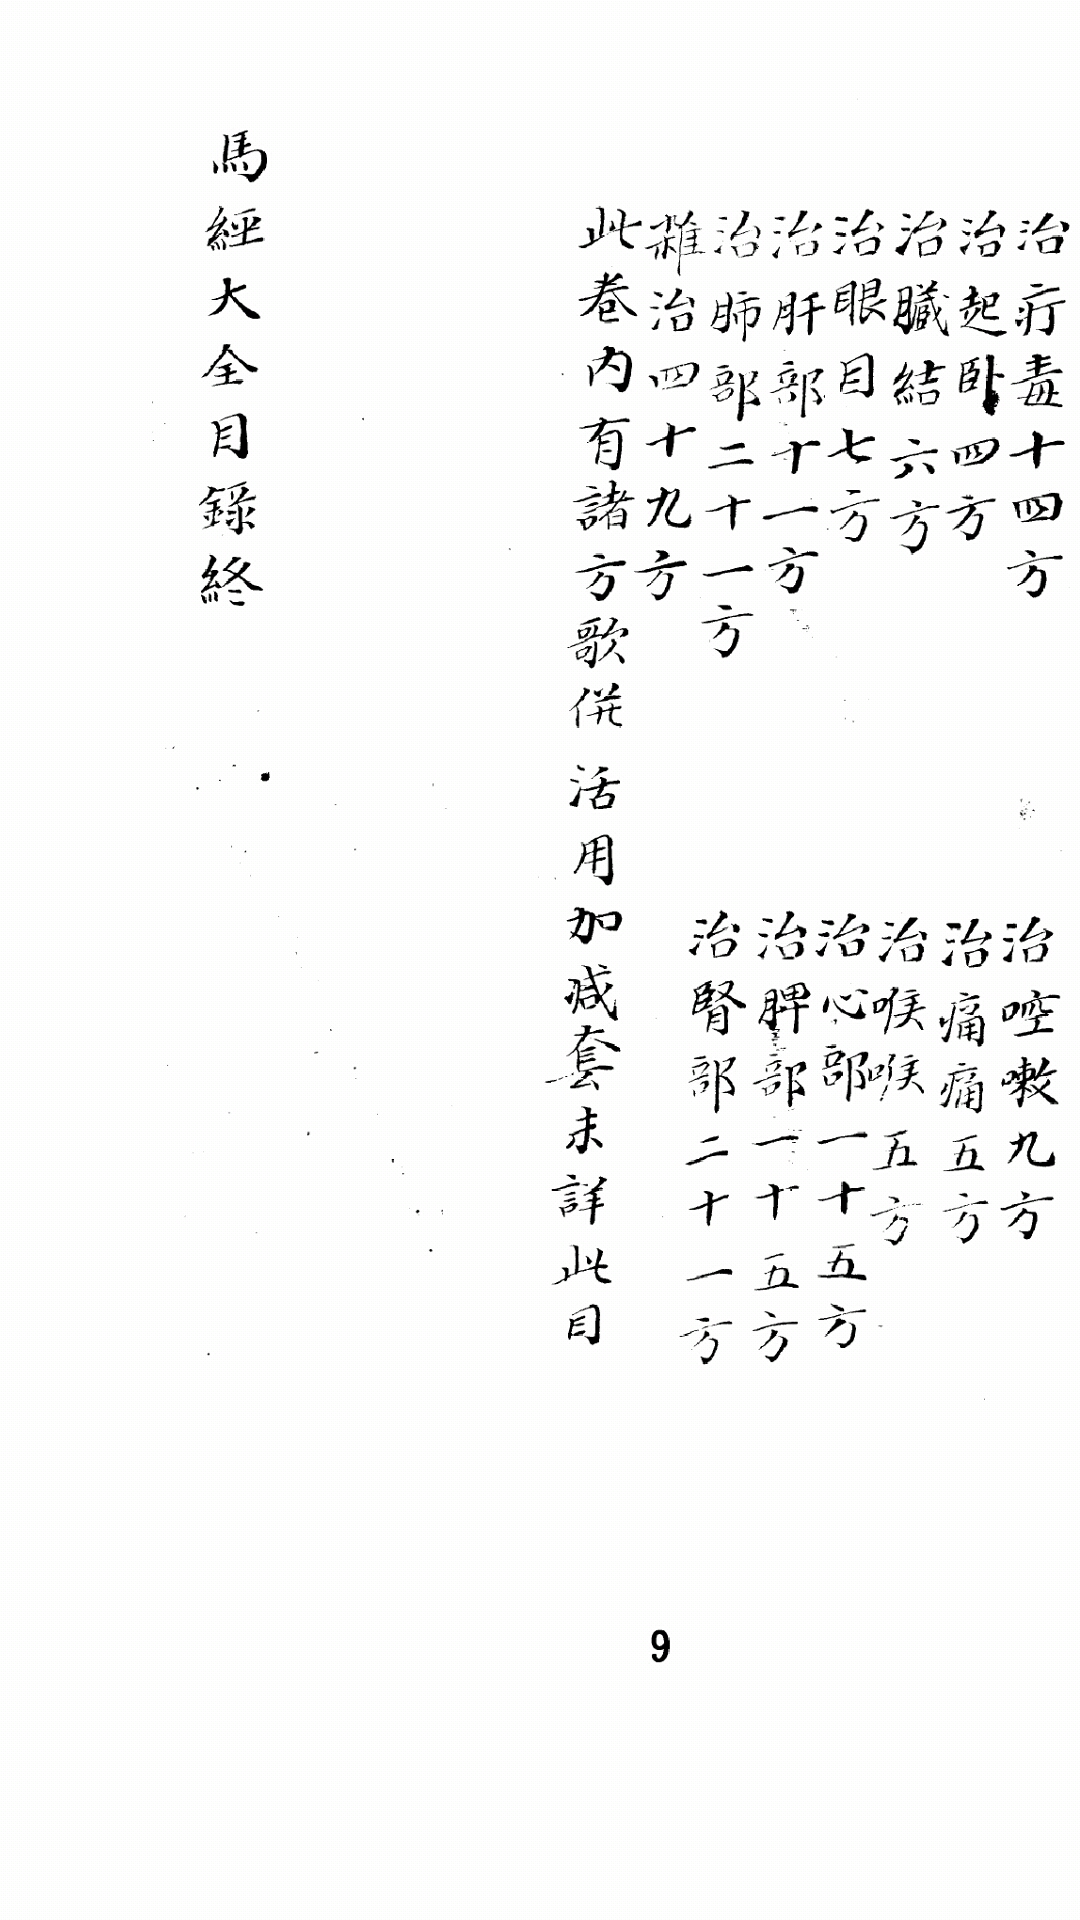 治疔毒十四方
治啌嗽九方
治起卧四方
治痛痛五方
治臓結六方
治喉喉五方
治眼目七方
治心部一十五方
治肝部十一方
治脾部一十五方
治肺部二十一方
治腎部二十一方
雜治四十九方
此卷内有諸方歌併活用加减套未詳此目
馬經大全目錄終
9